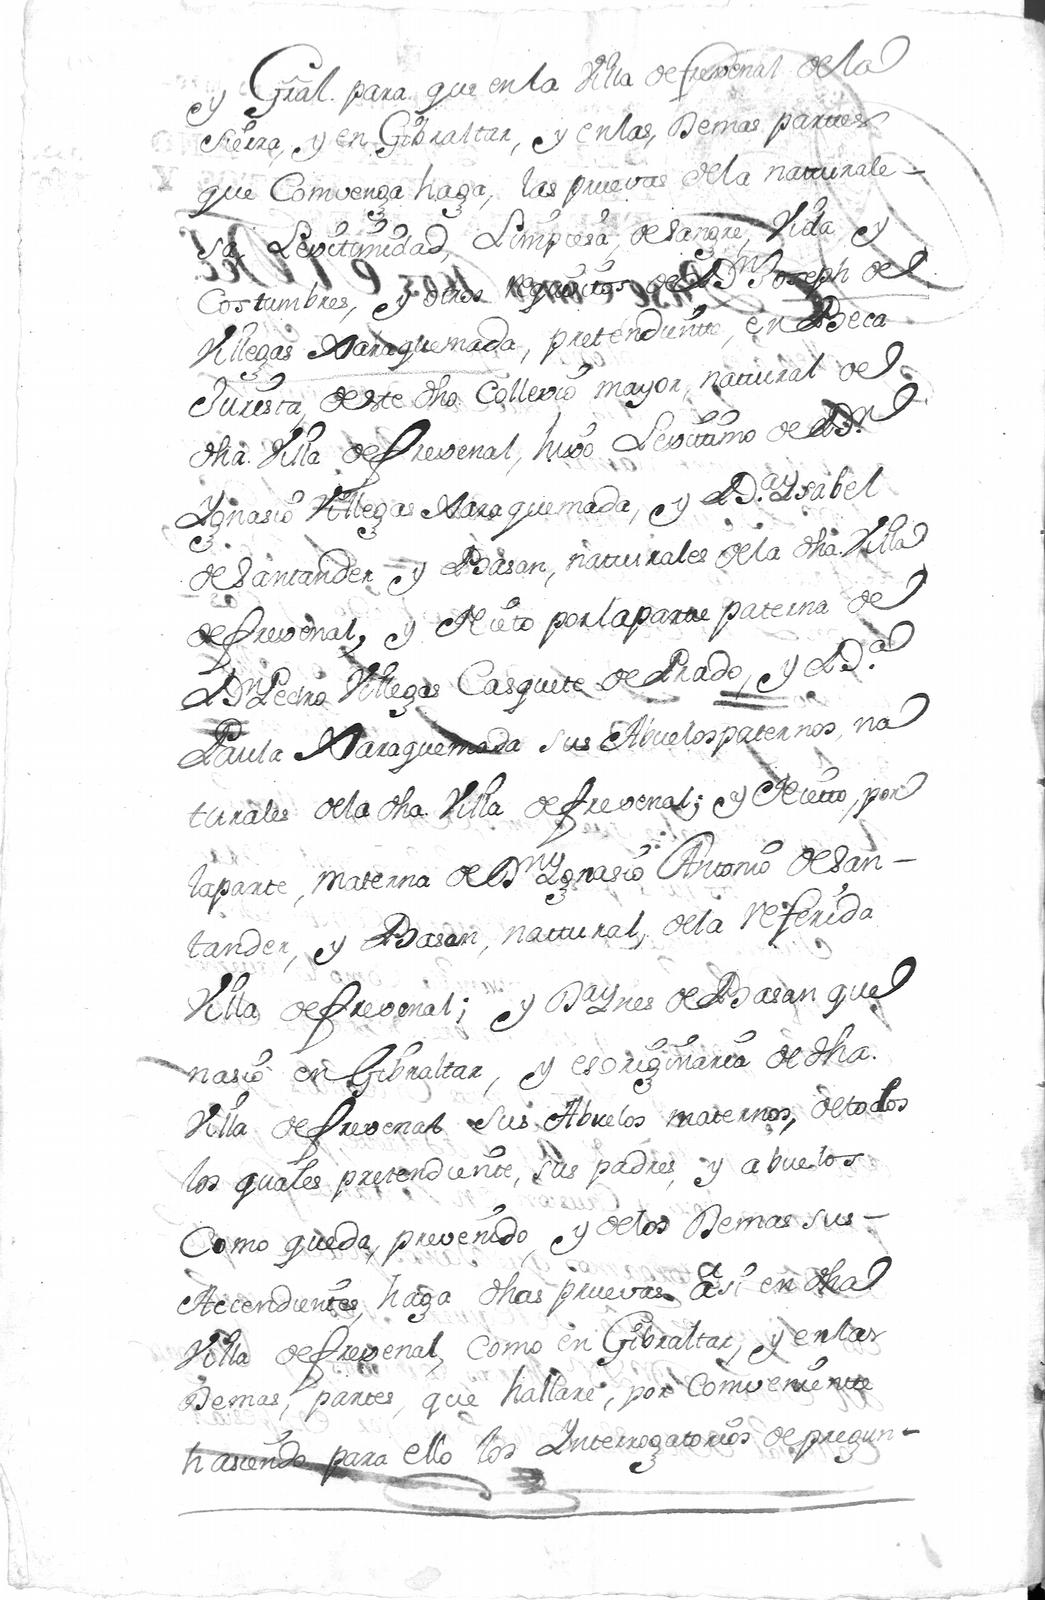 y Gral. para que en la Villa de frexenal de la
Sierra, y en Gibraltar, y en las, Demas partes
que Comvenga haga, las pruevas de la naturale-
sa, Lexitimidad, Limpiesa, de Sangre, Vida y
Costumbres, y otros requicitos de Dn Joseph de
Villegas Xaraquemada, pretendiente, en Beca
Jurista, de este dho Collexio mayor, natural de
dha. Villa de frexenal, hixo Lexitimo de Dn.
Ygnasio Villegas Xaraquemada, y Da. Ysabel
de Santander y Basan, naturales de la dha. Villa
de frexenal, y Nieto por la parte paterna de
Dn Pedro Villegas Casquete de Prado, y Da.
Paula Xaraquemada sus Abuelos paternos, na
turales de la dha. Villa de frexenal; y Nietto, por
la parte, materna de Dn Ygnasio Antonio de San-
tander, y Basan, natural, de la referida
Villa de frexenal; y Da Ynes de Basan que
nasio en Gibraltar, y es originaria de dha.
Villa de frexenal sus Abuelos maternos, de todos
los quales pretendiente, sus padres, y abuelos
Como queda, prevenido, y de los Demas sus-
Accendientes, haga dhas pruevas asi en dha
Villa de frexenal, como en Gibraltar, y en las
Demas, partes, que hallare, por Comveniente
hasiendo para ello los Ynterrogatorios de pregun-